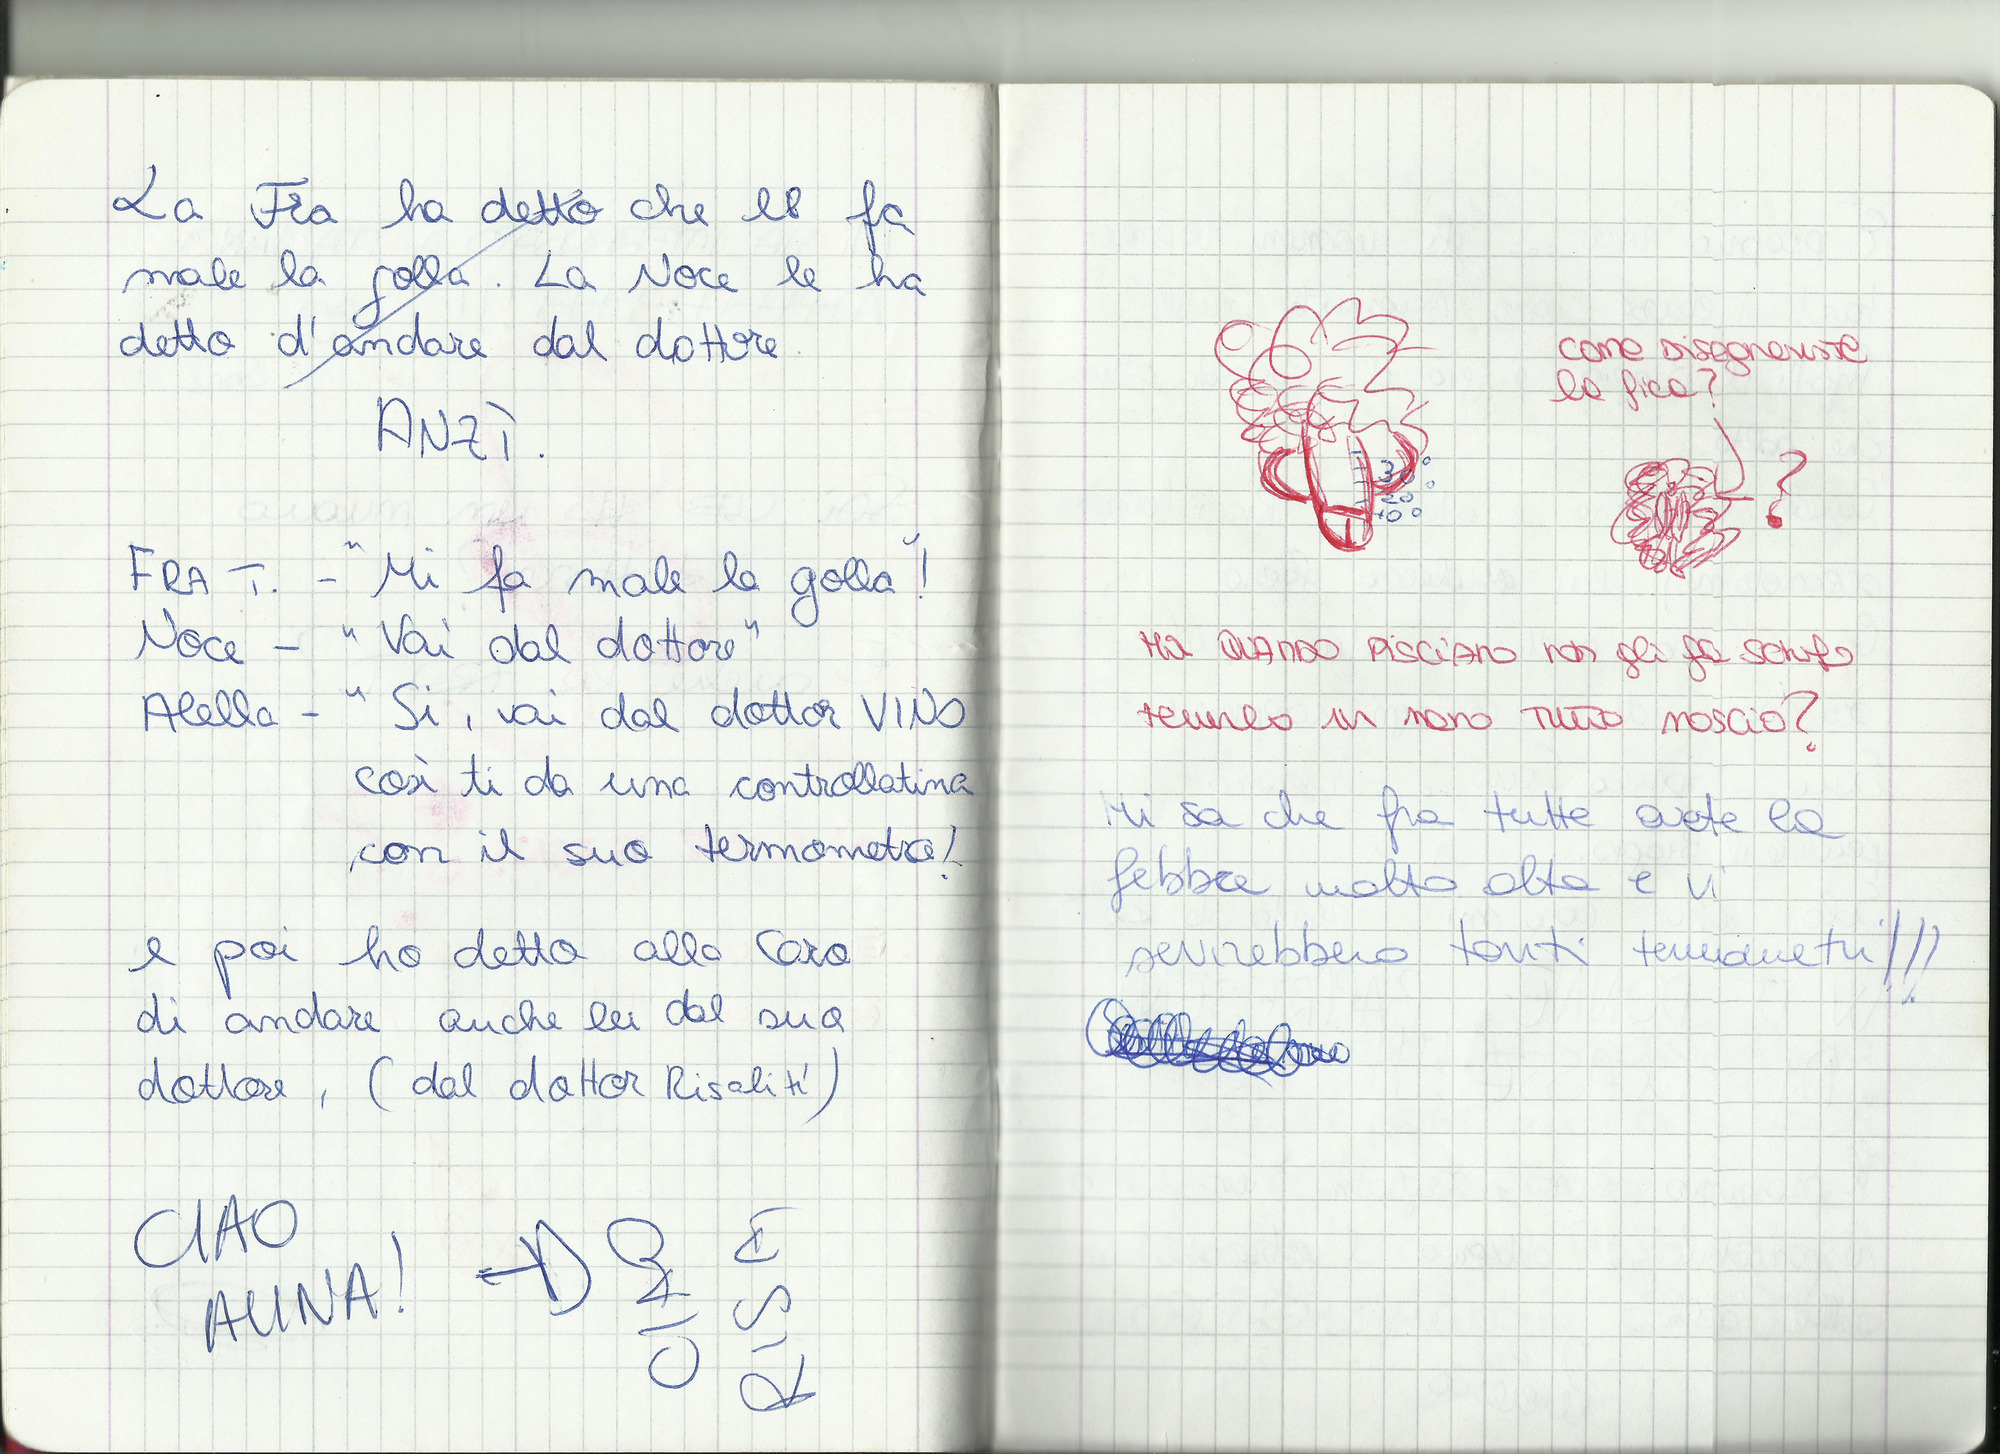 La Fra ha detto che le fa
male la golla. La Noce le ha
detto d'andare dal dottore.
ANZÌ.
FRA T. - "Mi fa male la golla"!
Noce - "Vai dal dottore"
Alella - "Si, vai dal dottor VINO
così ti da una controllatina
con il suo termometro!
e poi ho detto alla Caro
di andare anche lei dal suo
dottore, (dal dottor Risaliti)
CIAO
ALINA!
come disegnereste
la fica?
?
30°
20°
10°
Ma QUANDO PISCIANO non gli fa schifo
tenerlo in mano TUTTO MOSCIO?
Mi sa che fra tutte avete la
febbre molto alta e vi
servirebbero tanti termometri!!!